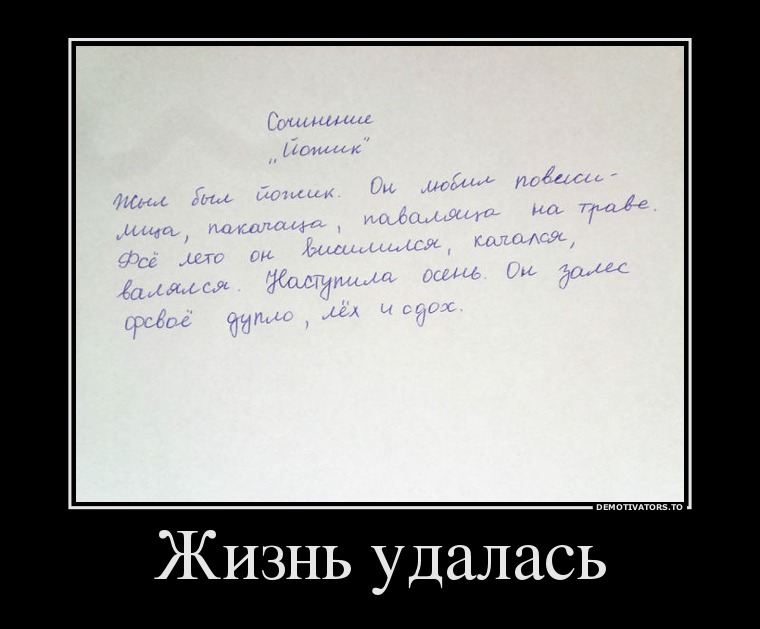 Сочинение
„Йожик"
Жыл был йожик. Он любил повесили-
мица, пакачаца, паваляца на траве.
Фсё лето он висилился, качался,
валялся. Наступила осень. Он залес
фсвоё дупло, лёх и сдох.
DEMOTIVATORS.TO
Жизнь удалась